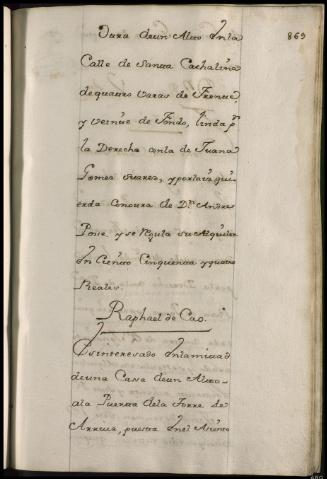 869
Ottra deun Alto Enla
Calle de Santa Cathalina
de quatro varas de Frente,
y veinte de Fondo, linda pr.
la Derecha conla de Juana
Gomez Suarez, y porla izqui
erda con otra de Dn. Andres
Ponse y se Regula su Alquiler
En Ciento Cinquenta y quatro
Reales.
Raphael de Cas.
Es interesado Enlamitad
de una Casa deun Alto
ala Puerta dela Torre de
Arriva, puesta Enel Asiento